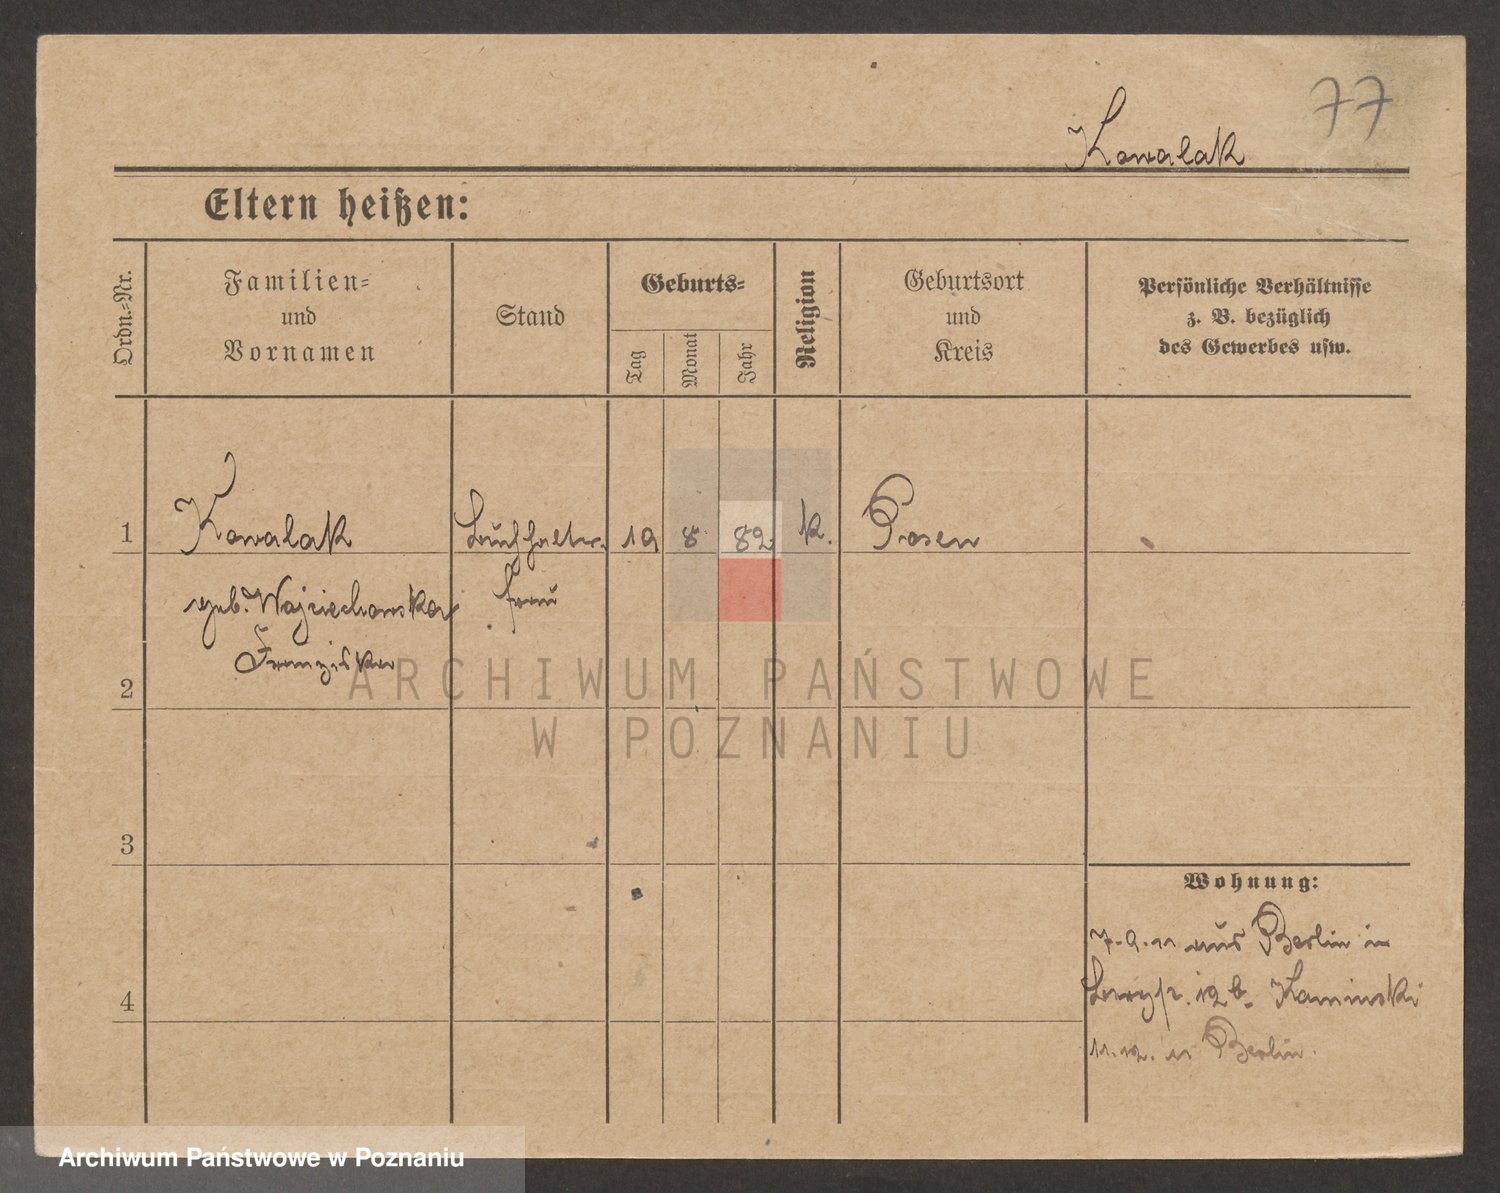 77
Kowalak
Eltern heißen:
Ordn.-Nr.
Familien-
und
Vornamen
Stand
Geburts-
Tag
Monat
Jahr
Religion
Geburtsort
und
Kreis
Persönliche Verhältnisse
z. B. bezüglich
des Gewerbes usw.
1 Kowalak Buchhalter 19 8 82 k. Posen
geb. Wojciechowska frau
Franziska
2
3
4
Wohnung:
7-9-11 aus Berlin in
12 b. Kaminski
11.12.11 Berlin.
ARCHIWUM PAŃSTWOWE
W POZNANIU
Archiwum Państwowe w Poznaniu